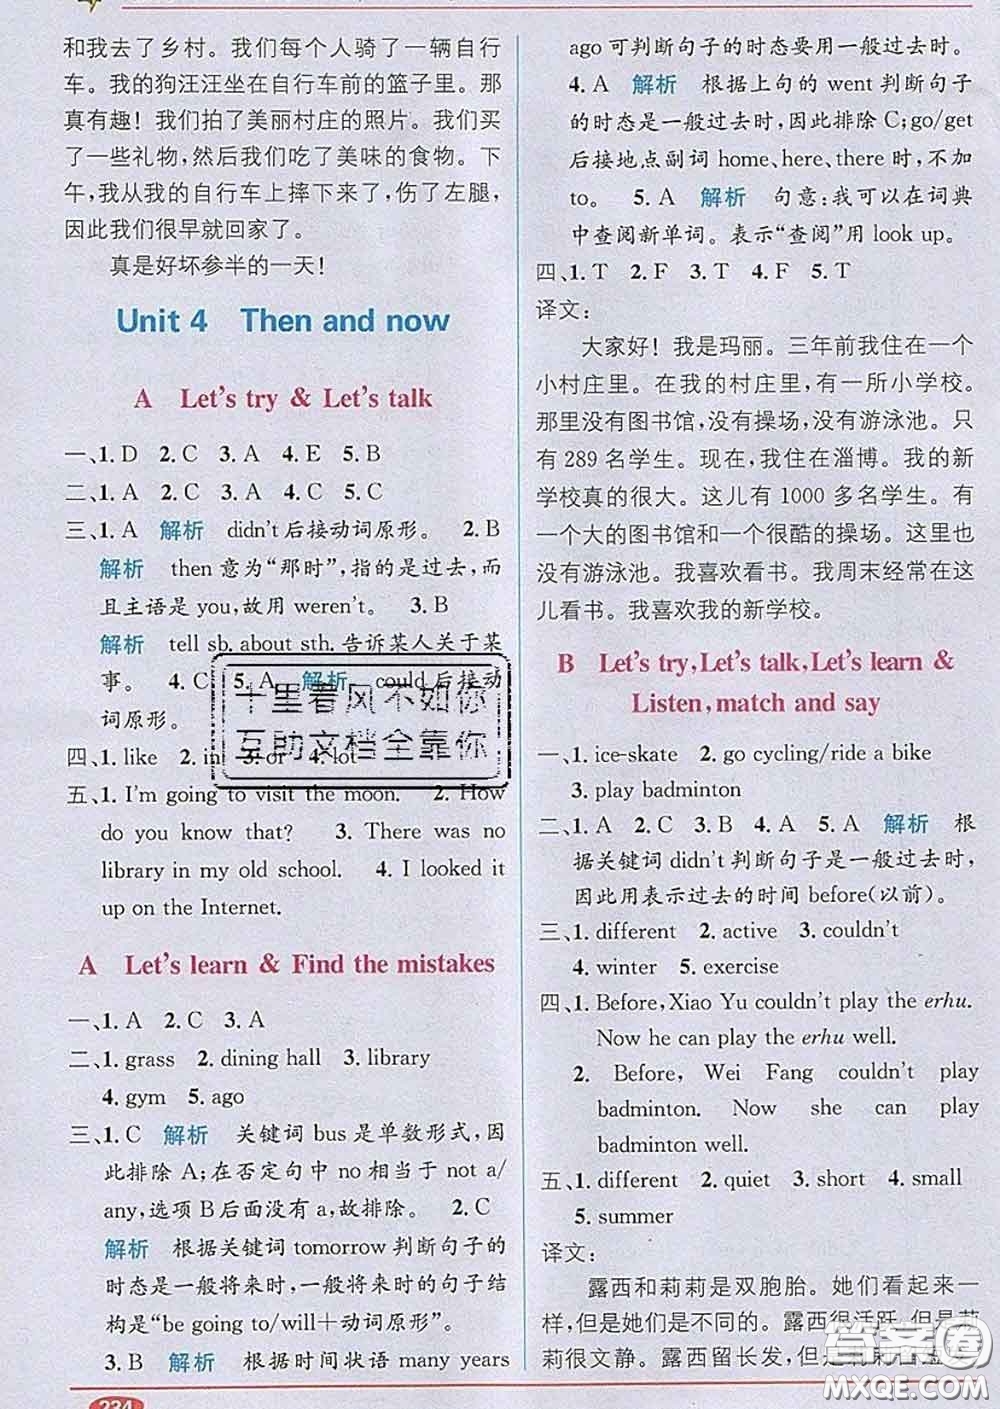 和我去了乡村。我们每个人骑了一辆自行
车。我的狗汪汪坐在自行车前的篮子里。那
真有趣！我们拍了美丽村庄的照片。我们买
了一些礼物，然后我们吃了美味的食物。下
午，我从我的自行车上摔下来了，伤了左腿，
因此我们很早就回家了。
真是好坏参半的一天！
Unit 4 Then and now
A Let's try & Let's talk
一、1. D 2. C 3. A 4. E 5. B
二、1. A 2. C 3. A 4. C 5. C
三、1. A 解析 didn't 后接动词原形。 2. B
解析 then 意为“那时”，指的是过去，而
且主语是 you，故用 weren't。 3. B
解析 tell sb. about sth. 告诉某人关于某
事。 4. C 5. A 解析 could 后接动
词原形。
四、1. like 2. in 3. or 4. lot
五、1. I'm going to visit the moon. 2. How
do you know that? 3. There was no
library in my old school. 4. I looked it
up on the Internet.
A Let's learn & Find the mistakes
一、1. A 2. C 3. A
二、1. grass 2. dining hall 3. library
4. gym 5. ago
三、1. C 解析 关键词 bus 是单数形式，因
此排除 A；在否定句中 no 相当于 not a/
any，选项 B 后面没有 a，故排除。 2. C
解析 根据关键词 tomorrow 判断句子的
时态是一般将来时，一般将来时的句子结
构是“be going to/will＋动词原形”。
3. B 解析 根据时间状语 many years
234
ago 可判断句子的时态要用一般过去时。
4. A 解析 根据上句的 went 判断句子
的时态是一般过去时，因此排除 C；go/get
后接地点副词 home、here、there 时，不加
to。 5. A 解析 句意：我可以在词典
中查阅新单词。表示“查阅”用 look up。
四、1. T 2. F 3. T 4. F 5. T
译文：
大家好！我是玛丽。三年前我住在一个
小村庄里。在我的村庄里，有一所小学校。
那里没有图书馆，没有操场，没有游泳池。只
有 289 名学生。现在，我住在淄博。我的新
学校真的很大。这儿有 1000 多名学生。有
一个大的图书馆和一个很酷的操场。这里也
没有游泳池。我喜欢看书。我周末经常在这
儿看书。我喜欢我的新学校。
B Let's try, Let's talk, Let's learn &
Listen, match and say
一、1. ice-skate 2. go cycling/ride a bike
3. play badminton
二、1. A 2. C 3. B 4. A 5. A 解析 根
据关键词 didn't 判断句子是一般过去时，
因此用表示过去的时间 before（以前）。
三、1. different 2. active 3. couldn't
4. winter 5. exercise
四、1. Before, Xiao Yu couldn't play the erhu.
Now he can play the erhu well.
2. Before, Wei Fang couldn't play
badminton. Now she can play
badminton well.
五、1. different 2. quiet 3. short 4. small
5. summer
译文：
露西和莉莉是双胞胎。她们看起来一
样，但是她们是不同的。露西很活跃，但是莉
莉很文静。露西留长发，但是
十里春风不如你
互助文档全靠你
答案圈
MXQE.COM